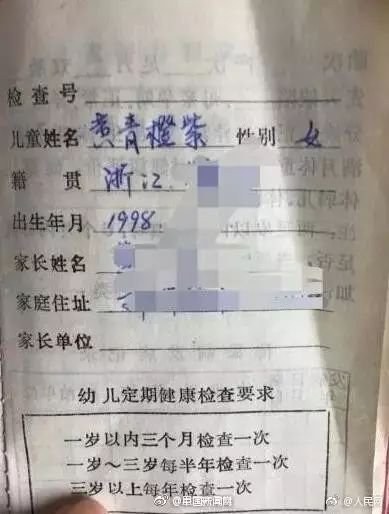 检查号
儿童姓名 黄青橙紫 性别 女
籍贯 浙江
出生年月 1998
家长姓名
家庭住址
家长单位
幼儿定期健康检查要求
一岁以内三个月检查一次
一岁～三岁每半年检查一次
三岁以上每年检查一次
@中国新闻网 @人民网